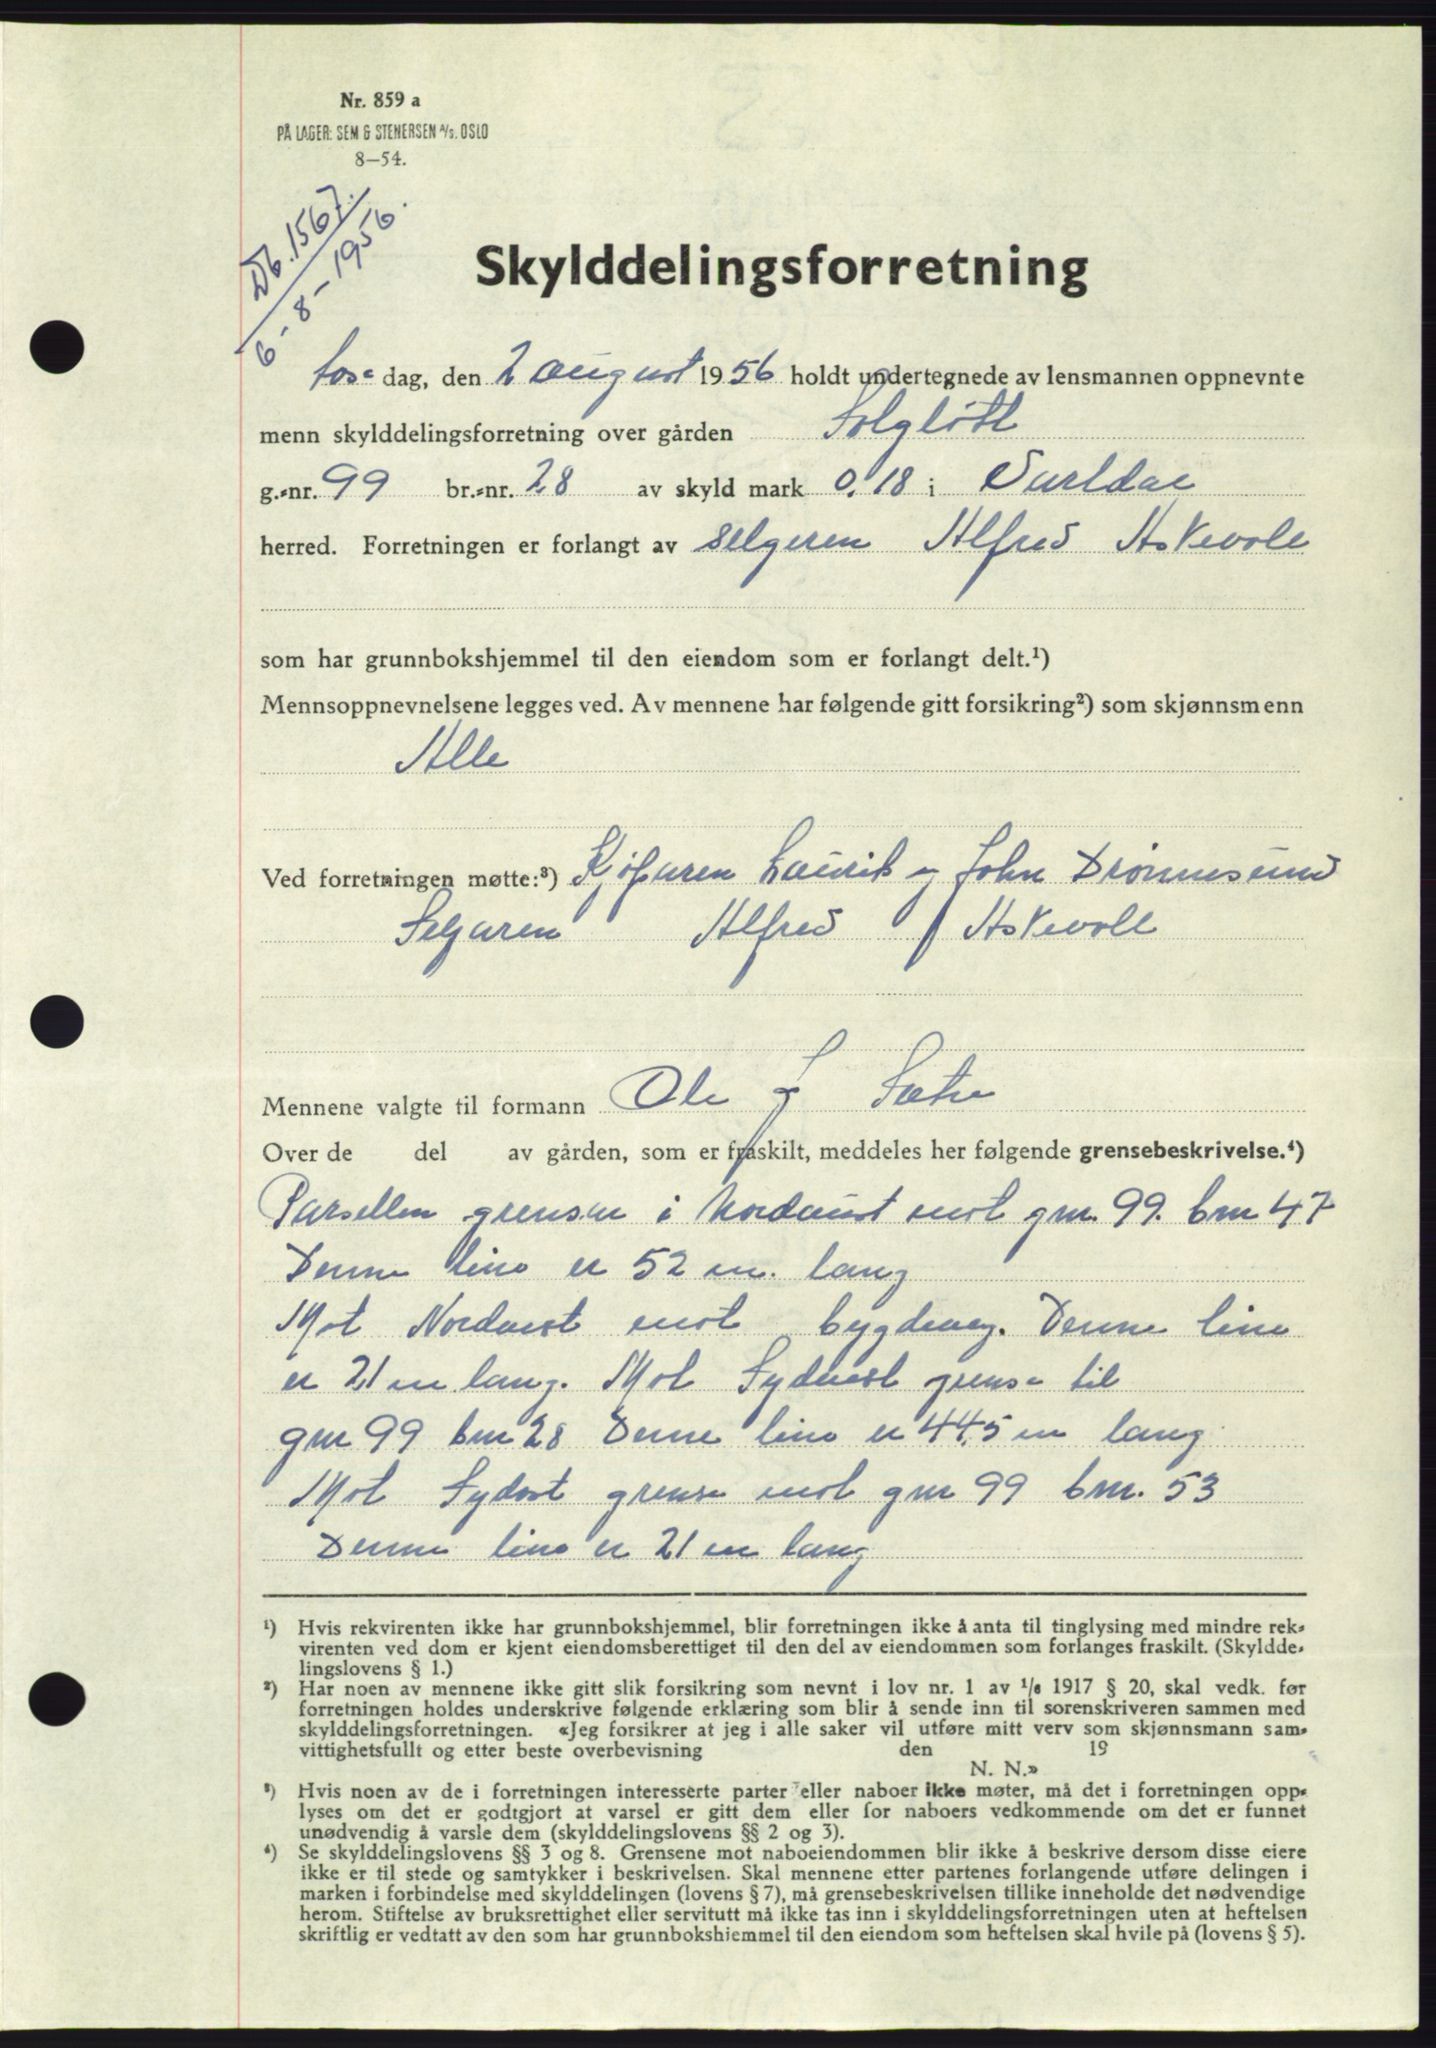 Nr. 859 a
PÅ LAGER: SEM & STENERSEN A/S. OSLO
8—54.
Db. 1567.
6-8-1956.
Skylddelingsforretning
tors dag, den 2 august 1956 holdt undertegnede av lensmannen oppnevnte
menn skylddelingsforretning over gården Solgløtt
g.-nr. 99 br.-nr. 28 av skyld mark 0.18 i
herred. Forretningen er forlangt av selgeren Alfred Askevoll
som har grunnbokshjemmel til den eiendom som er forlangt delt.¹)
Mennsoppnevnelsene legges ved. Av mennene har følgende gitt forsikring²) som skjønnsmenn
Alle
Ved forretningen møtte:³) Kjøperen Laurits og John Drønnesund
Selgeren Alfred Askevoll
Mennene valgte til formann Ole J Sætre
Over de del av gården, som er fraskilt, meddeles her følgende grensebeskrivelse.⁴)
Parsellen grenser i Nordaust mot gnr. 99. bnr 47
Denne line er 52 m. lang
Mot Nordvest mot bygdeveg. Denne line
er 21 m lang. Mot Sydvest grense til
gnr 99 bnr 28 Denne line er 44,5 m lang
Mot Sydost grense mot gnr 99 bnr. 53
Denne line er 21 m lang
¹) Hvis rekvirenten ikke har grunnbokshjemmel, blir forretningen ikke å anta til tinglysing med mindre rek-
virenten ved dom er kjent eiendomsberettiget til den del av eiendommen som forlanges fraskilt. (Skyldde-
lingslovens § 1.)
²) Har noen av mennene ikke gitt slik forsikring som nevnt i lov nr. 1 av ¹/₆ 1917 § 20, skal vedk. før
forretningen holdes underskrive følgende erklæring som blir å sende inn til sorenskriveren sammen med
skylddelingsforretningen. «Jeg forsikrer at jeg i alle saker vil utføre mitt verv som skjønnsmann sam-
vittighetsfullt og etter beste overbevisning den 19
N. N.»
³) Hvis noen av de i forretningen interesserte parter eller naboer ikke møter, må det i forretningen opp-
lyses om det er godtgjort at varsel er gitt dem eller for naboers vedkommende om det er funnet
unødvendig å varsle dem (skylddelingslovens §§ 2 og 3).
⁴) Se skylddelingslovens §§ 3 og 8. Grensene mot naboeiendommen blir ikke å beskrive dersom disse eiere
ikke er til stede og samtykker i beskrivelsen. Skal mennene etter partenes forlangende utføre delingen i
marken i forbindelse med skylddelingen (lovens § 7), må grensebeskrivelsen tillike inneholde det nødvendige
herom. Stiftelse av bruksrettighet eller servitutt må ikke tas inn i skylddelingsforretningen uten at heftelsen
skriftlig er vedtatt av den som har grunnbokshjemmel til den eiendom som heftelsen skal hvile på (lovens § 5).